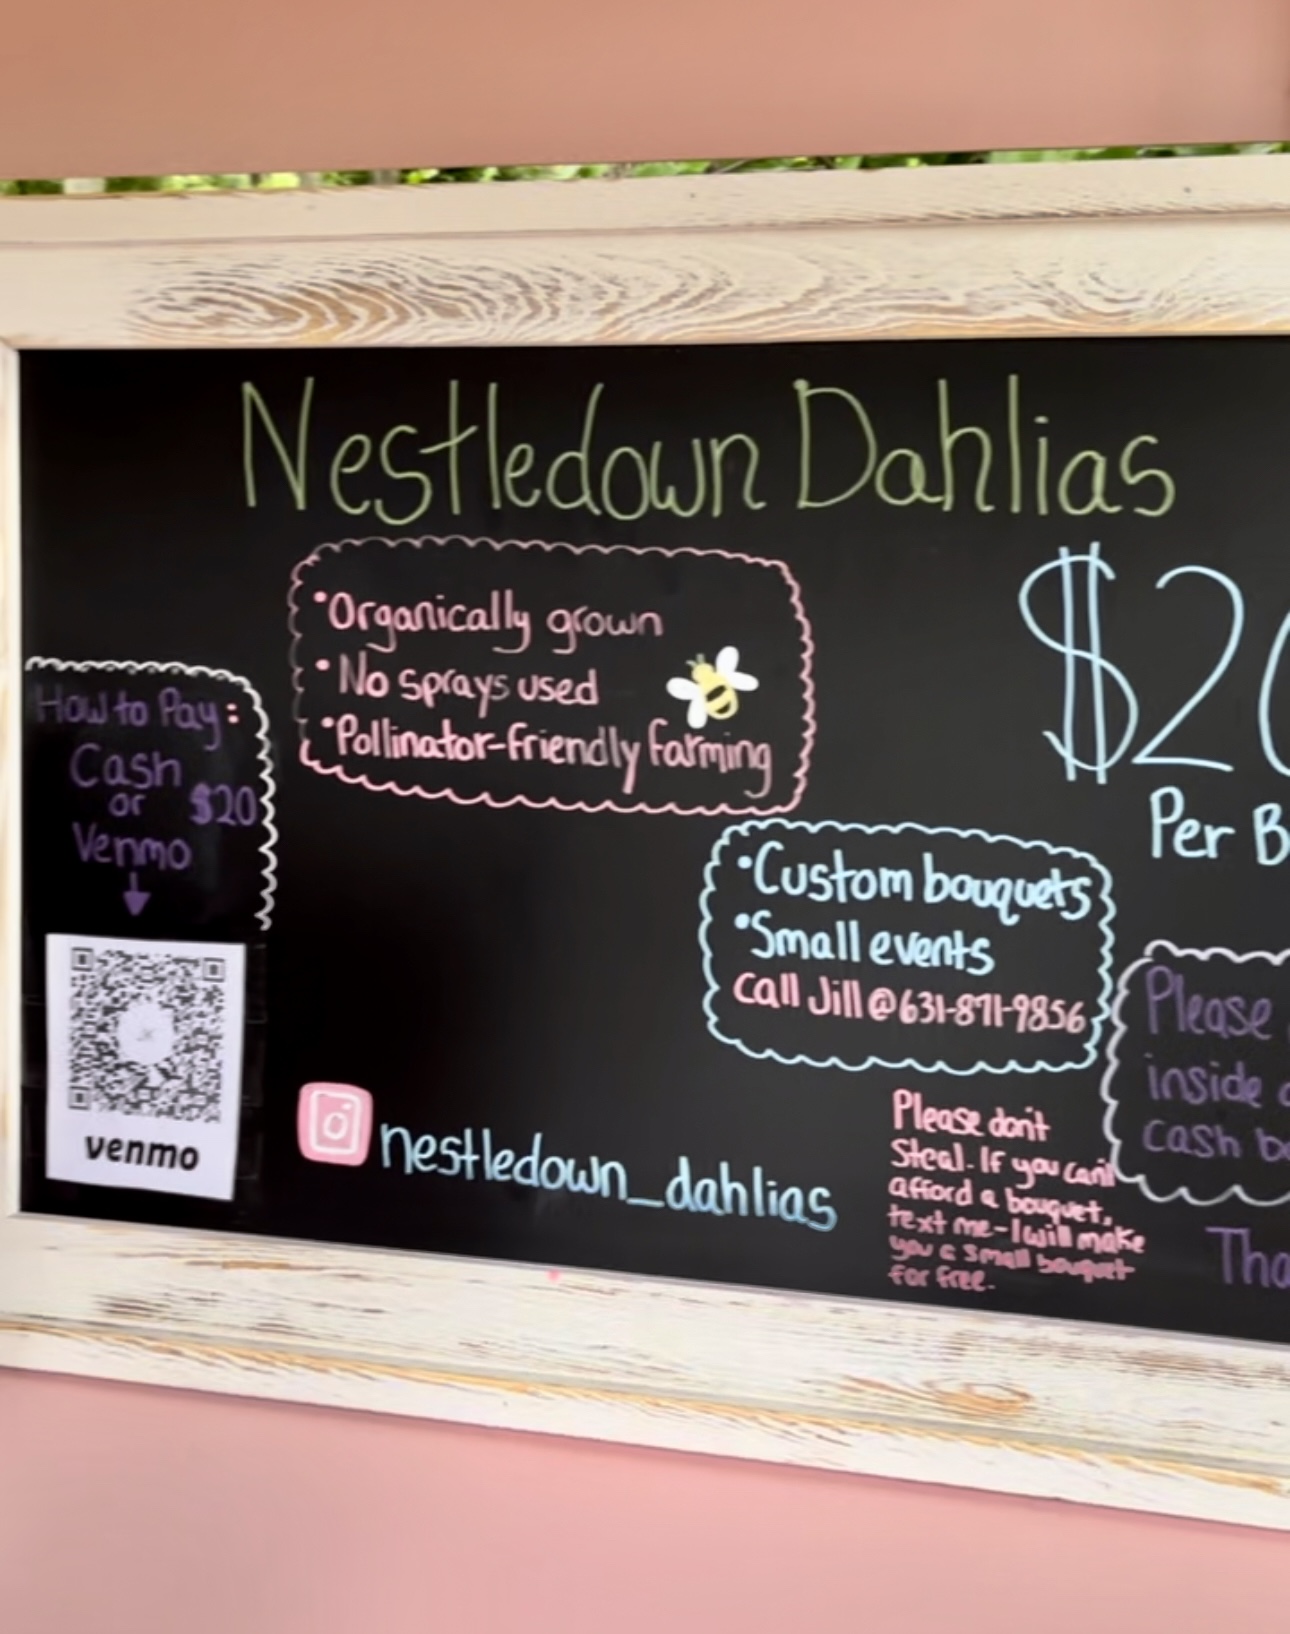 Nestledown Dahlias
•Organically grown
•No sprays used
•Pollinator-friendly farming
$20
Per B
How to Pay:
Cash
or $20
Venmo
venmo
•Custom bouquets
•Small events
Call Jill @ 631-871-9856
nestledown_dahlias
Please don't
Steal. If you can't
afford a bouquet,
text me-I will make
you a small bouquet
for free.
Please
inside
cash